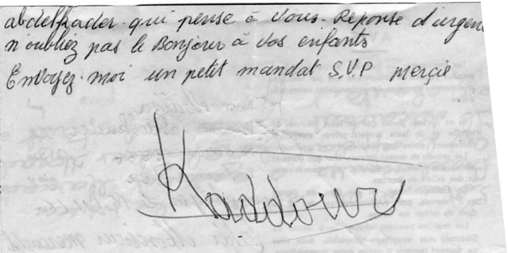 abdelkader qui pense à vous. Réponse d'urgen
n'oubliez pas le Bonjour à vos enfants
Envoyez-moi un petit mandat S.V.P merçie
Kaddour